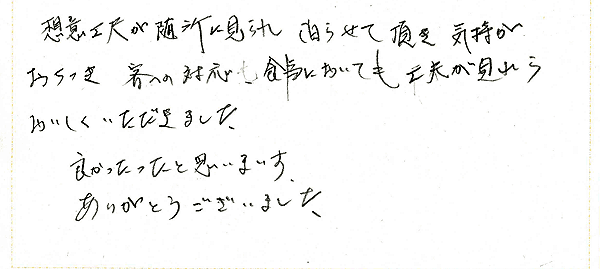 想意工夫が随所に見られ 泊らせて頂き 気持が
おちつき 客への対応も 食事においても 工夫が見れら
おいしくいただきました、
良かったったと思いまいす、
ありがとうございました、